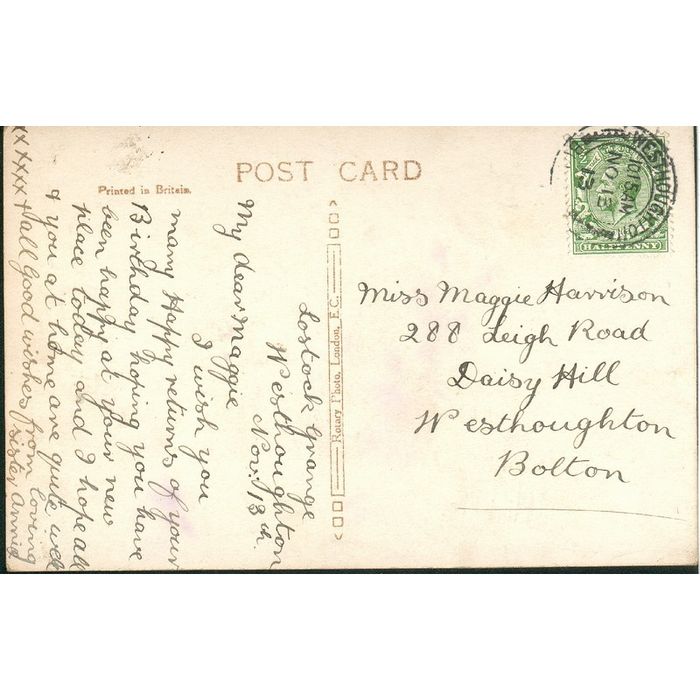 POST CARD
Printed in Britain.
Rotary Photo, London, E.C.
WESTHOUGHTON
1015AM
NO 13
13
HALFPENNY
Lostock Grange
Westhoughton
Nov. 13th.
My dear Maggie
I wish you
many Happy returns of your
Birthday, hoping you have
been happy at your new
place today and I hope all
& you at home are quite well
xxxxxx All Good wishes from loving
sister Annie
Miss Maggie Harrison
288 Leigh Road
Daisy Hill
Westhoughton
Bolton